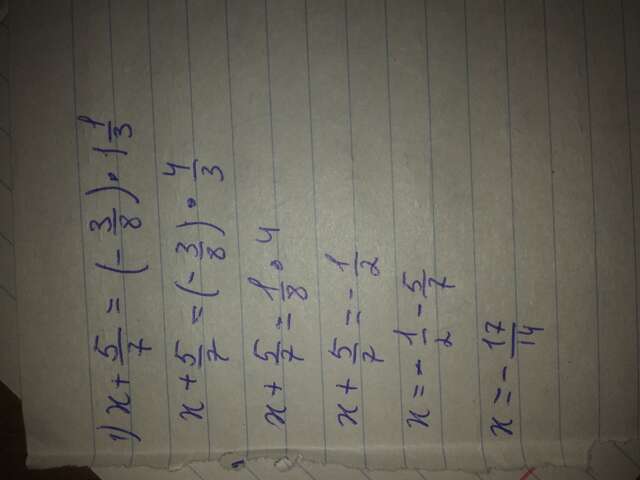 1) x + 5/7 = (- 3/8) · 1 1/3
x + 5/7 = (- 3/8) · 4/3
x + 5/7 = 1/8 · 4
x + 5/7 = - 1/2
x = - 1/2 - 5/7
x = - 17/14